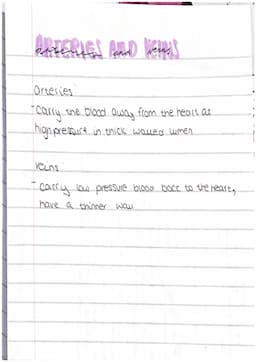 ARTERIES AND VEINS
arteries and veins
arteries
- Carry the blood away from the heart as
high pressure in thick walled lumen
veins
- carry low pressure blood back to the heart,
have a thinner wall